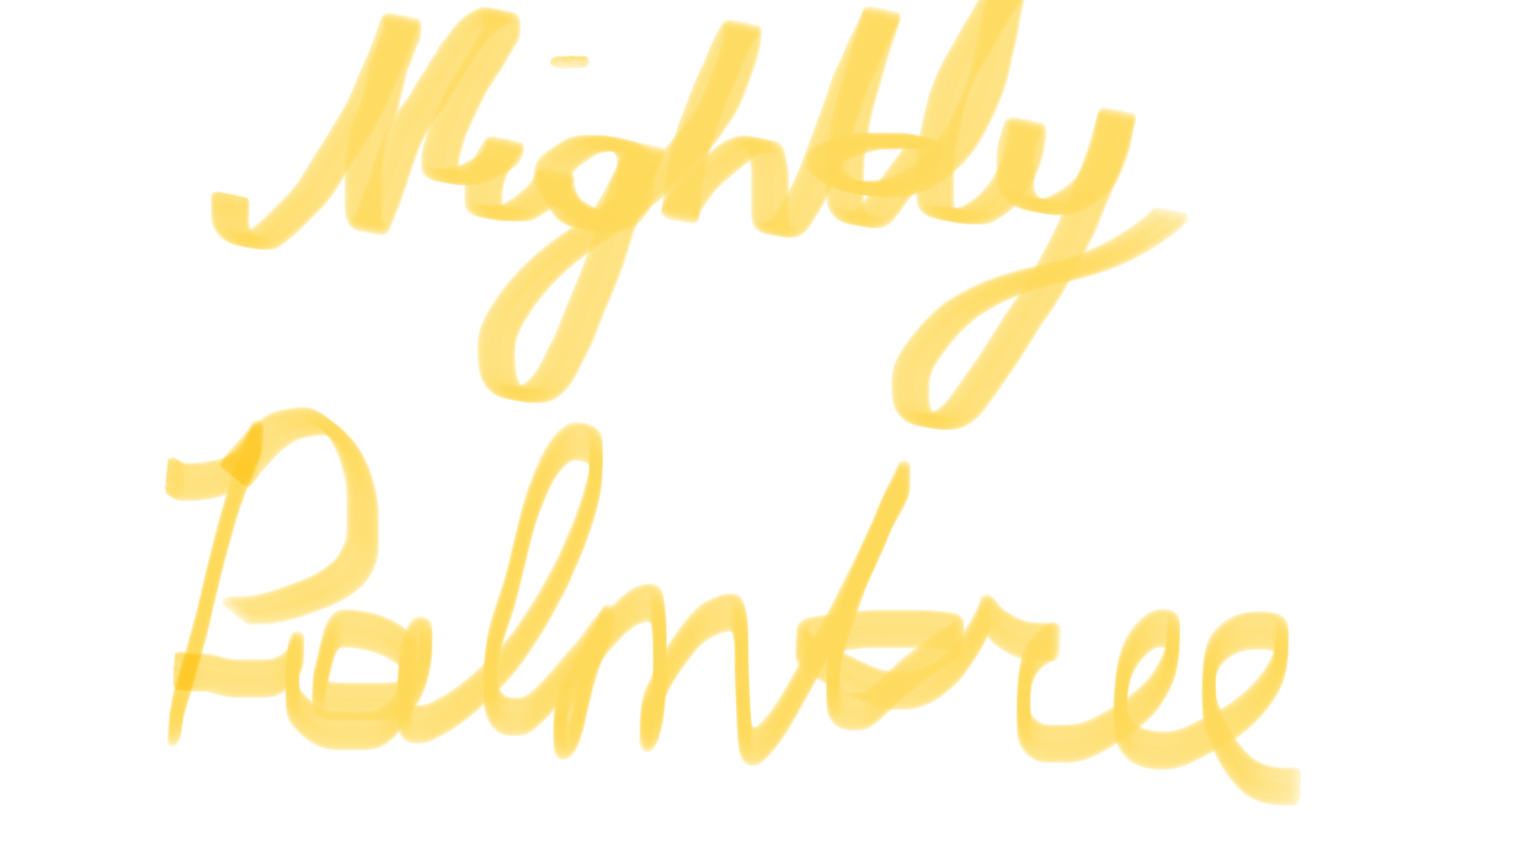 Nightly
Palmtree